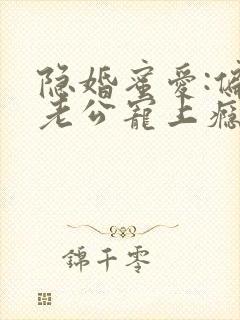 隐婚蜜爱:偏
老公寵上癮
錦千零